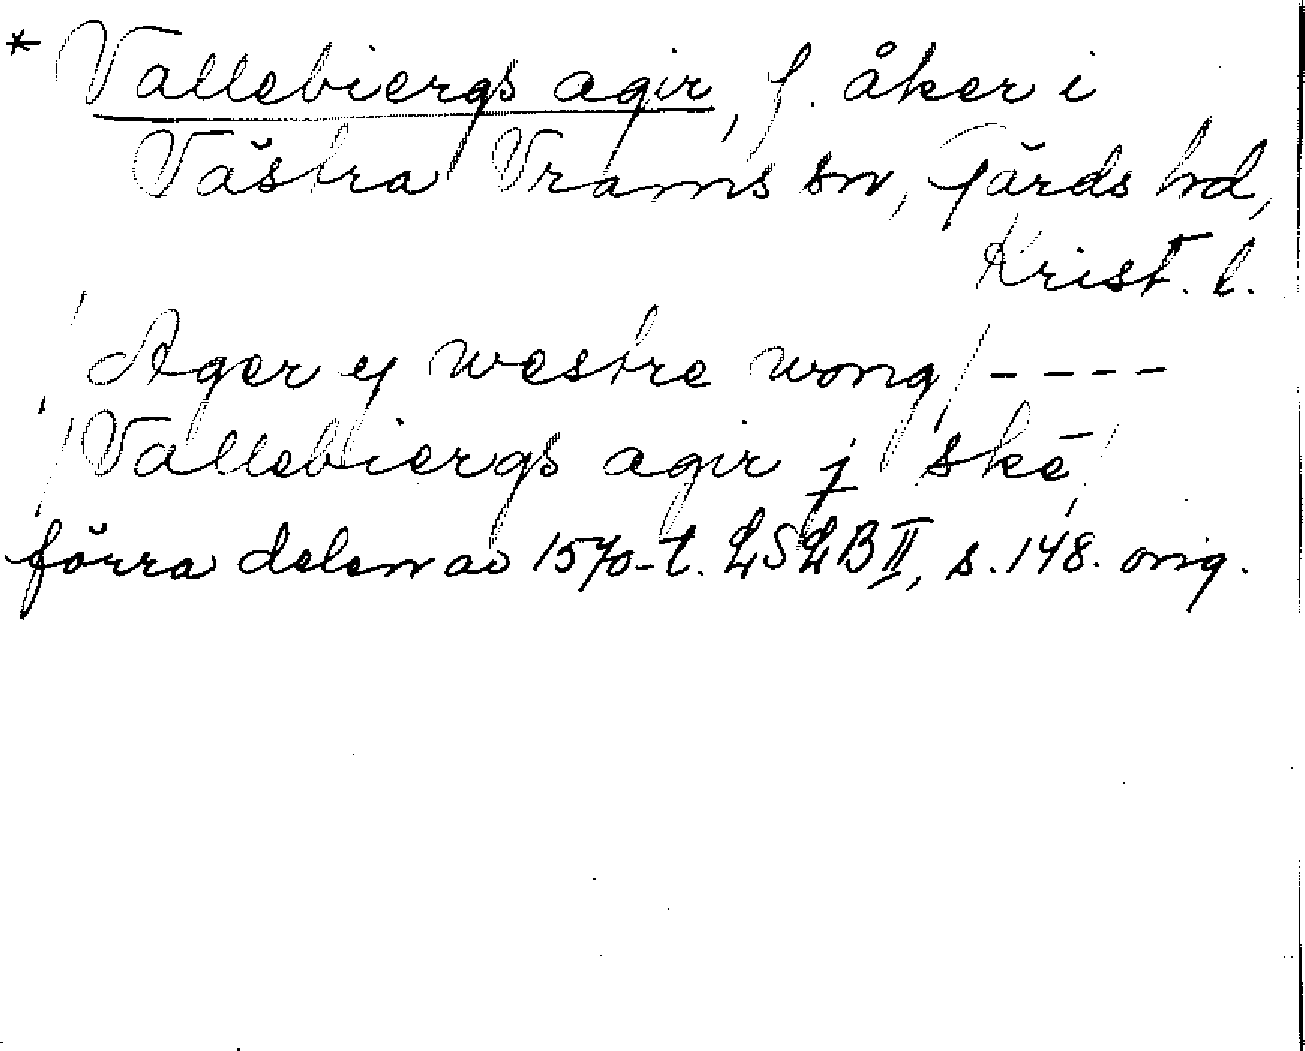 * Vallebiergs agir, f. åker i
Västra Vrams sn, Gärds hd,
Krist. l.
/Ager ej westre wong/ ----
/Vallebiergs agir j skē/
förra delen av 1570-t. LSLB II, s. 148. orig.